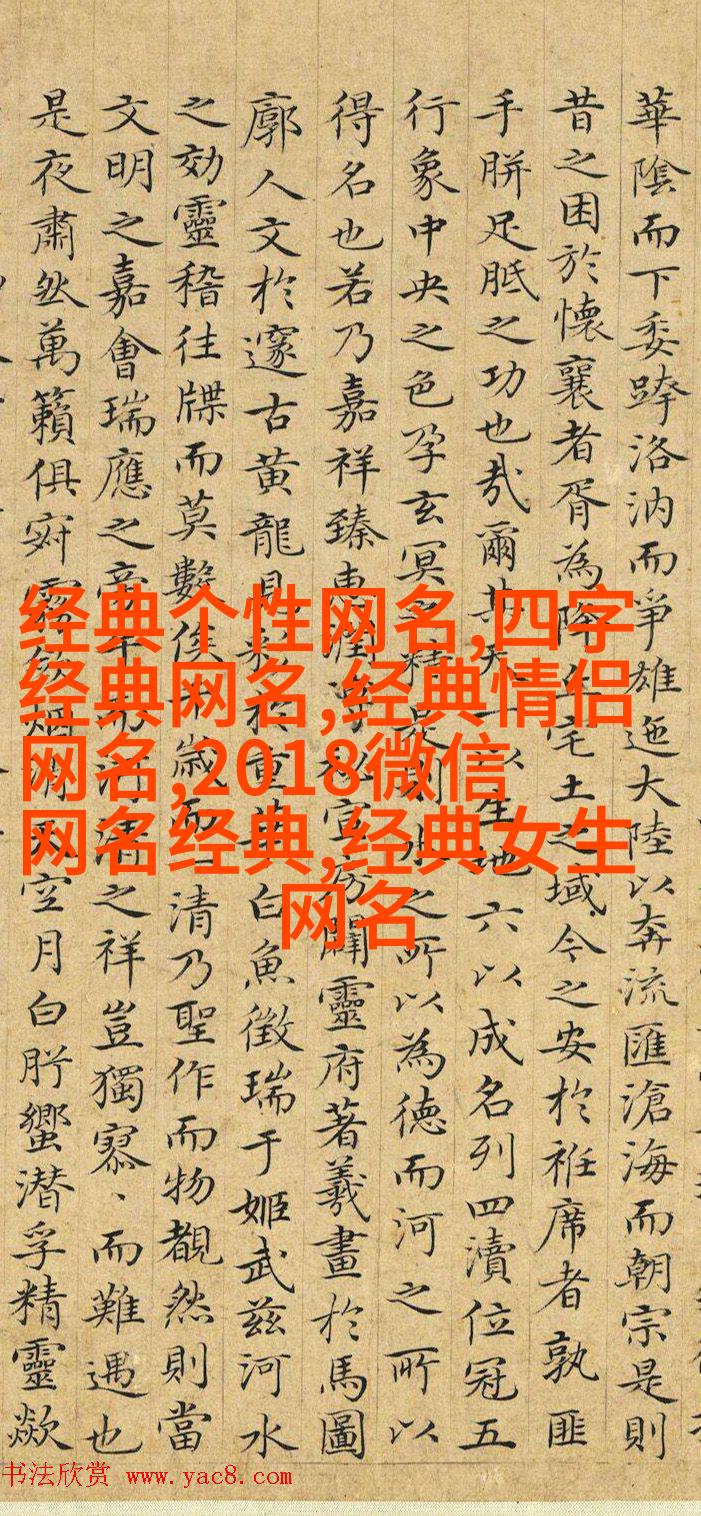 華陰而下委蹄洛汭而爭雄迤大陸以奔流匯滄海而朝宗是則
昔之困於懷襄者胥為降丘宅土之域今之安於袵席者孰匪
手胼足胝之功也哉爾其天以生地六以成名列四瀆位冠五
行象中央之色孕玄冥之精是則之所以為德而河之所以
得名也若乃嘉祥臻惠潤宣房闢靈府著羲畫於馬圖
廓人文於邃古黃龍見於白魚徵瑞于姬武茲河水
之効靈稽往牒而莫數俟歲而清乃聖作而物覩然則當
文明之嘉會瑞應之之祥豈獨寡、而難遇也
是夜肅然萬籟俱寂空月白肸蠁潛孚精靈歘
经典个性网名,四字
经典网名,经典情侣
网名,2018微信
网名经典,经典女生
网名
书法欣赏 www.yac8.com